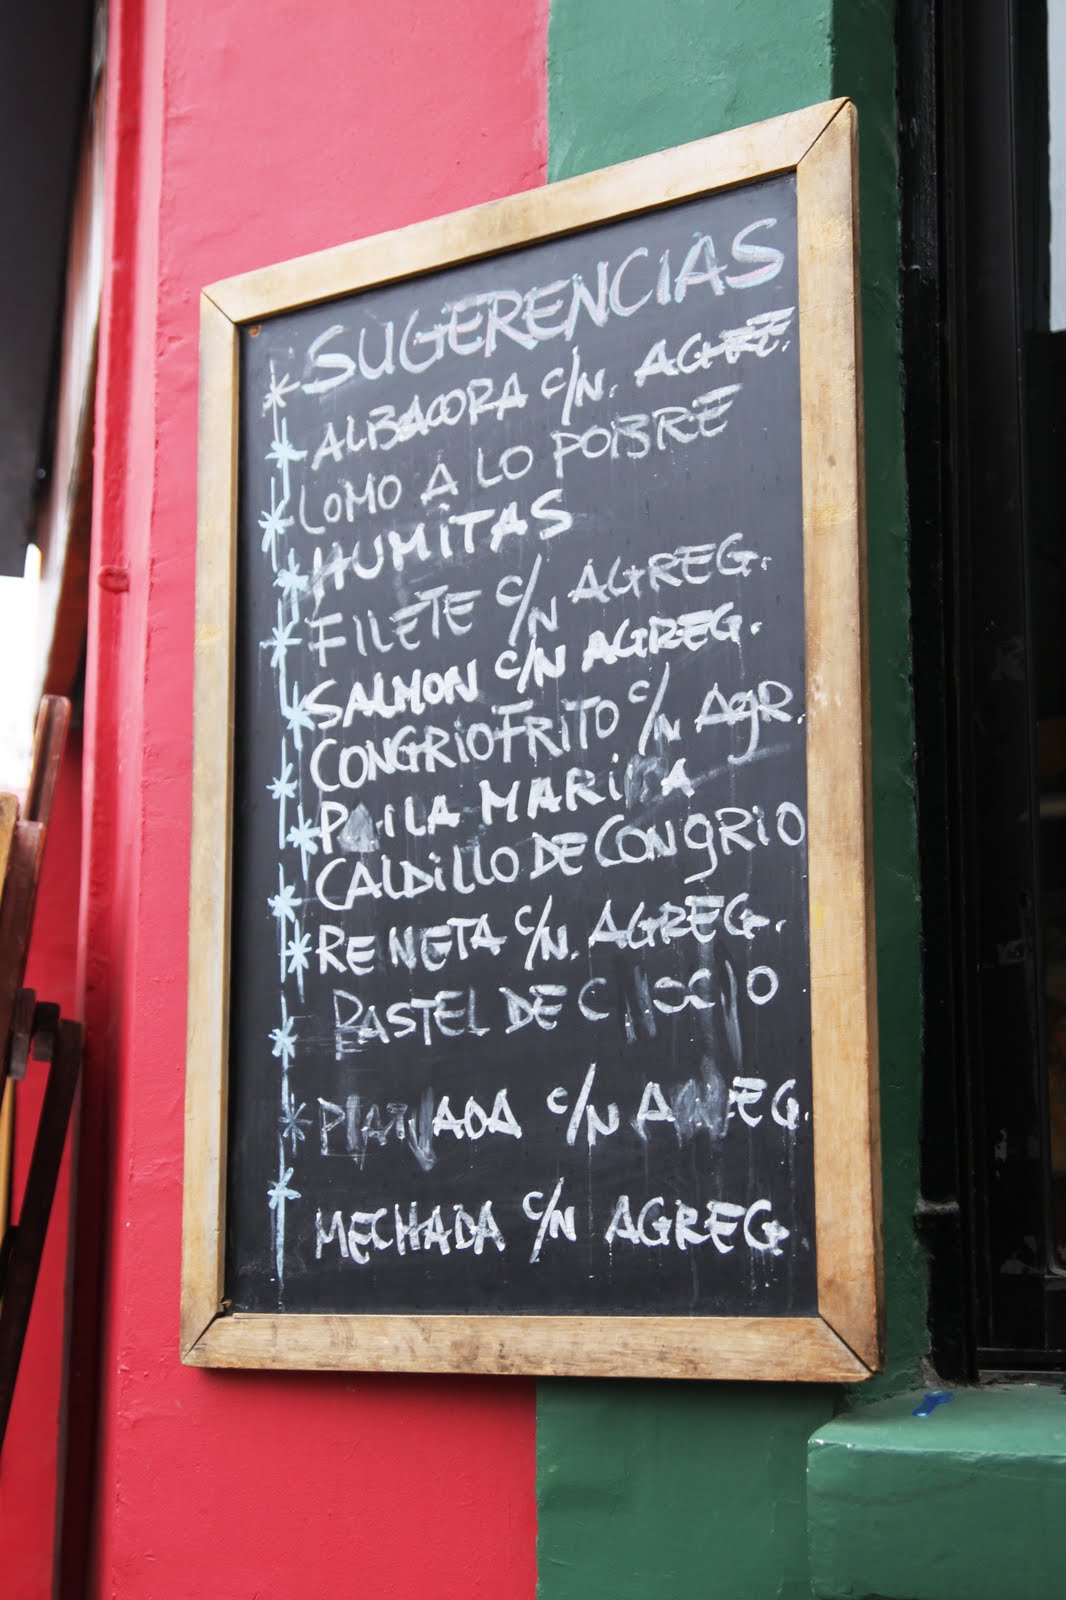 SUGERENCIAS
ALBACORA C/N. AGREG.
LOMO A LO POBRE
HUMITAS
FILETE C/N AGREG.
SALMON C/N AGREG.
CONGRIO FRITO C/N AGR.
PAILA MARINA
CALDILLO DE CONGRIO
RENETA C/N. AGREG.
PASTEL DE CHOCLO
C/N AGREG.
MECHADA C/N AGREG